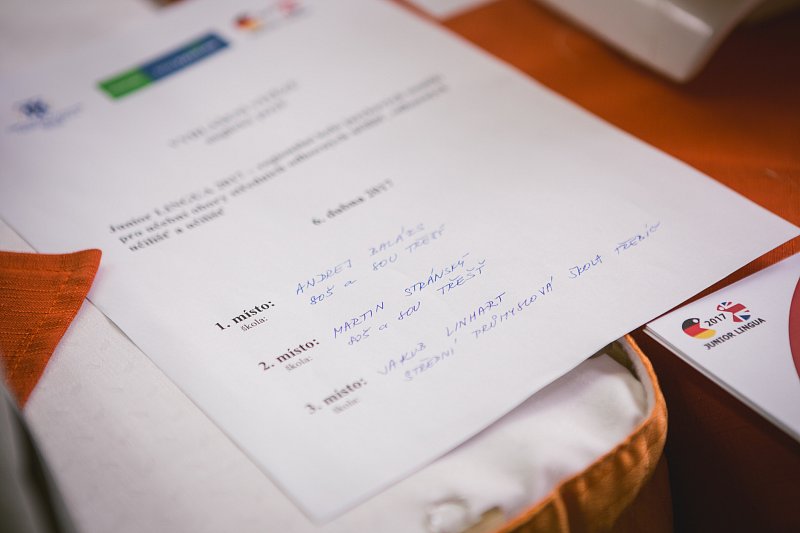 Junior LINGUA 2017 – regionální kolo
pro učební obory středních odborných
učilišť a učiliště
6. dubna 2017
1. místo: ANDREJ BALÁZS
škola: SOŠ a SOU TŘEŠŤ
2. místo: MARTIN STRÁNSKÝ
škola: SOŠ a SOU TŘEŠŤ
3. místo: JAKUB LINHART
škola: STŘEDNÍ PRŮMYSLOVÁ ŠKOLA TŘEBÍČ
2017
JUNIOR LINGUA